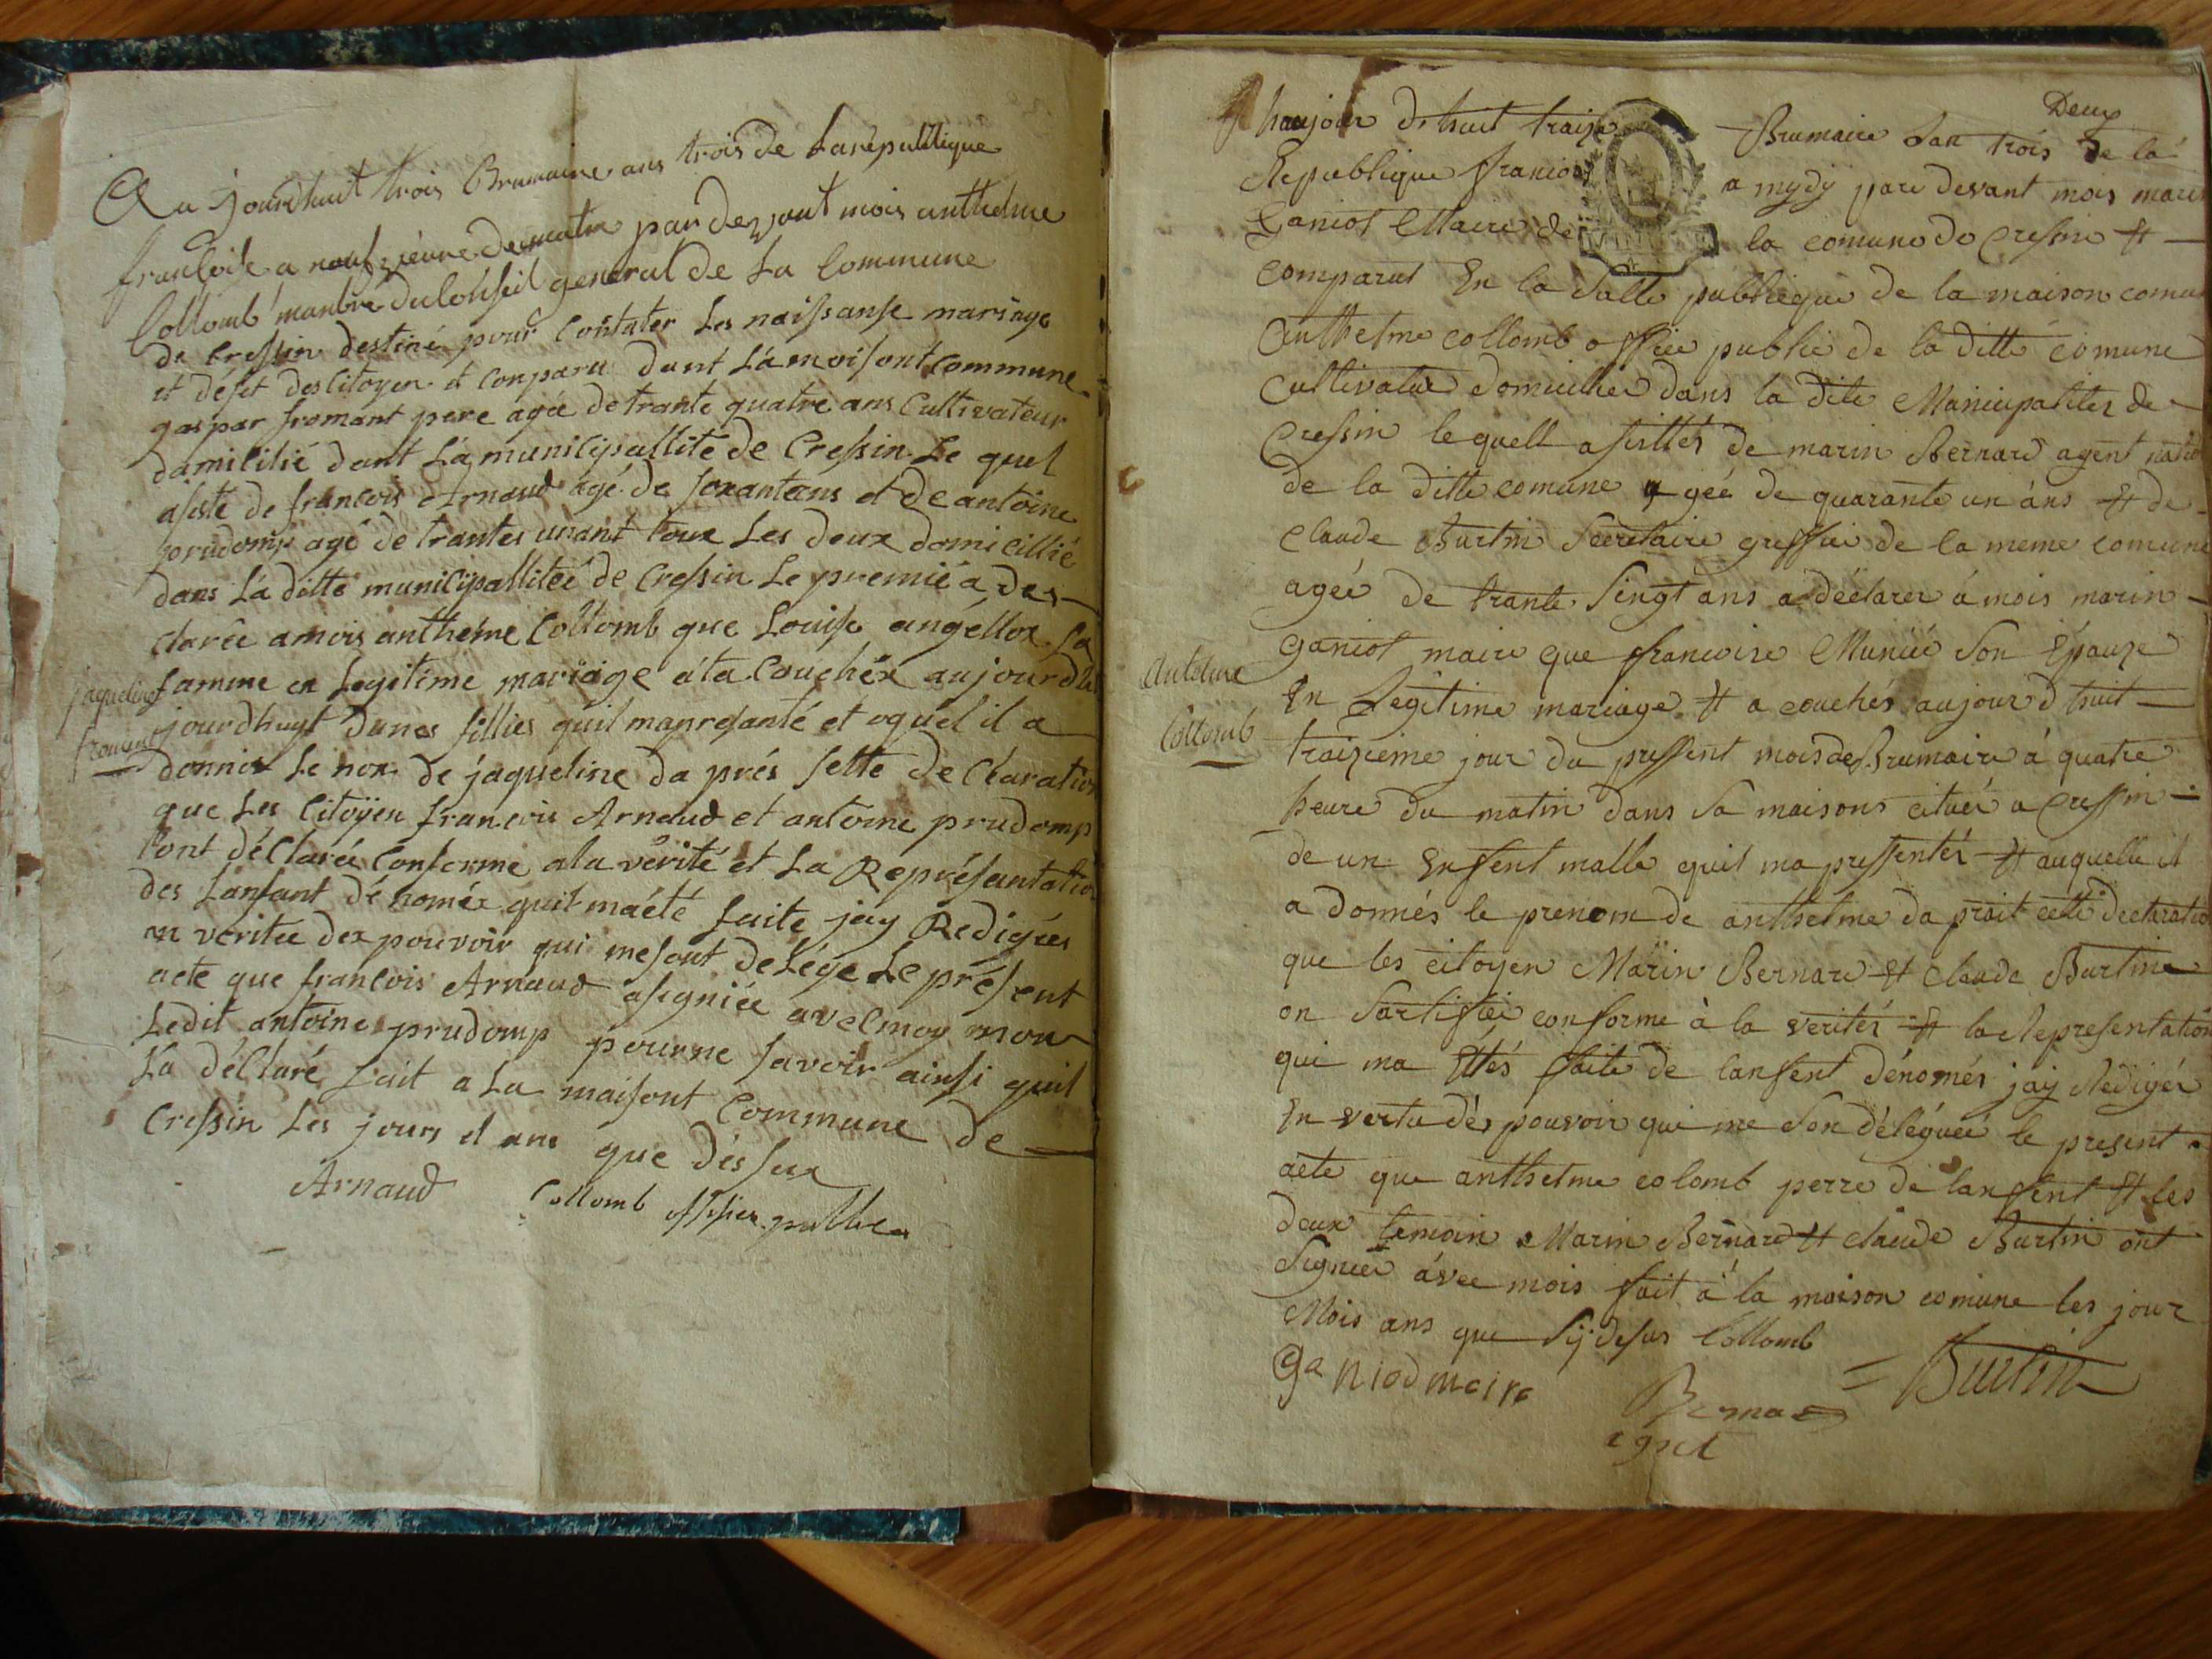 Au jourdhuit trois Brumaire ans trois de La republique
francoise a neuf eieure de matin par devant mois anthelme
Collomb manbre du Conseil general de La Commune
de Cressin destiné pour Contater Les naissanse mariage
et déset des Citoyen et Conparu dant La moisont Commune
gaspar fromant pere agée de trante quatre ans Cultivateur
damicilié dant La municipallité de Cressin Le quel
asisté de francois Arnaud agé de soxantans et de antoine
prudomp agé de trantes unant tous Les deux domicillié
dans La ditte municipallitée de Cressin Le premié a des
clarée a mois anthéme Collomb que Louise angéllox sa
famme en Legitime mariage a'ta Couchéx aujourdh
jaqueline
froment
jourdhuyt dunes fillies quil mapresanté et aquel il a
donnix Le nox de jaqueline da prés sette de Claration
que Les Citoÿen francois Arnaud et antoine prudomp
lont déClarée Conforme ala vérité et La Représantatio
des Lanfant dé noméx quil maété faite jay Redigées
en vérité dex pouvoir qui mesont deLége Le présent
acte que francois Arnaud asigniée avelmoy non
Ledit antoine prudomp pourne savoir ainsi quil
La déClaré fait a La maisont Commune de
Cressin Les jours et ans que dessux
Arnaud Collomb offisier public
Deux
haujour dhuit traize Brumaire Lan trois de la
Republique francois a mydÿ pare devant mois marin
Ganiot Maire de la comune de Cressin et
comparus En la Salle publieque de la maison comu
Anthelme collomb officie public de la ditte comune
Cultivatue domicilier dans la dite Municipaliter de
Cressin le quell asistter de marin Bernard agent natio
de la ditte comune agée de quarante un àns et de
Claude Burtin Secretaire greffier de la meme comune
ageé de trante Singt ans a déclarer à mois marin
ganiot maire que francoise Munié Son Épauze
En Legitime mariage et a couchés aujour d huit
Antelme
Collomb
traizieme jour du pressent mois de Brumaire à quatre
heure du matin dans Sa maisons cituér a Cressin
de un Enfent malle quil ma pressentér et auquelle il
a donnés le prenom de anthelme da prait cette declaratio
que les citoyen Marin Bernard et Claude Burtine
on Sartifiér conforme à la veritér et la Representation
qui ma Ettés faite de lanfent dénomér jay Redigér
En vertu dés pouvoir que me Son déléguée le present
acte que anthelme colomb perre de lanfent et les
deux temoin Marin Bernard et claude Burtin ont
Signeér àvec mois fait à la maison comune les jour
Mois ans que Sy desus Collomb
ganiod maire
Bernard Burtin
agnet